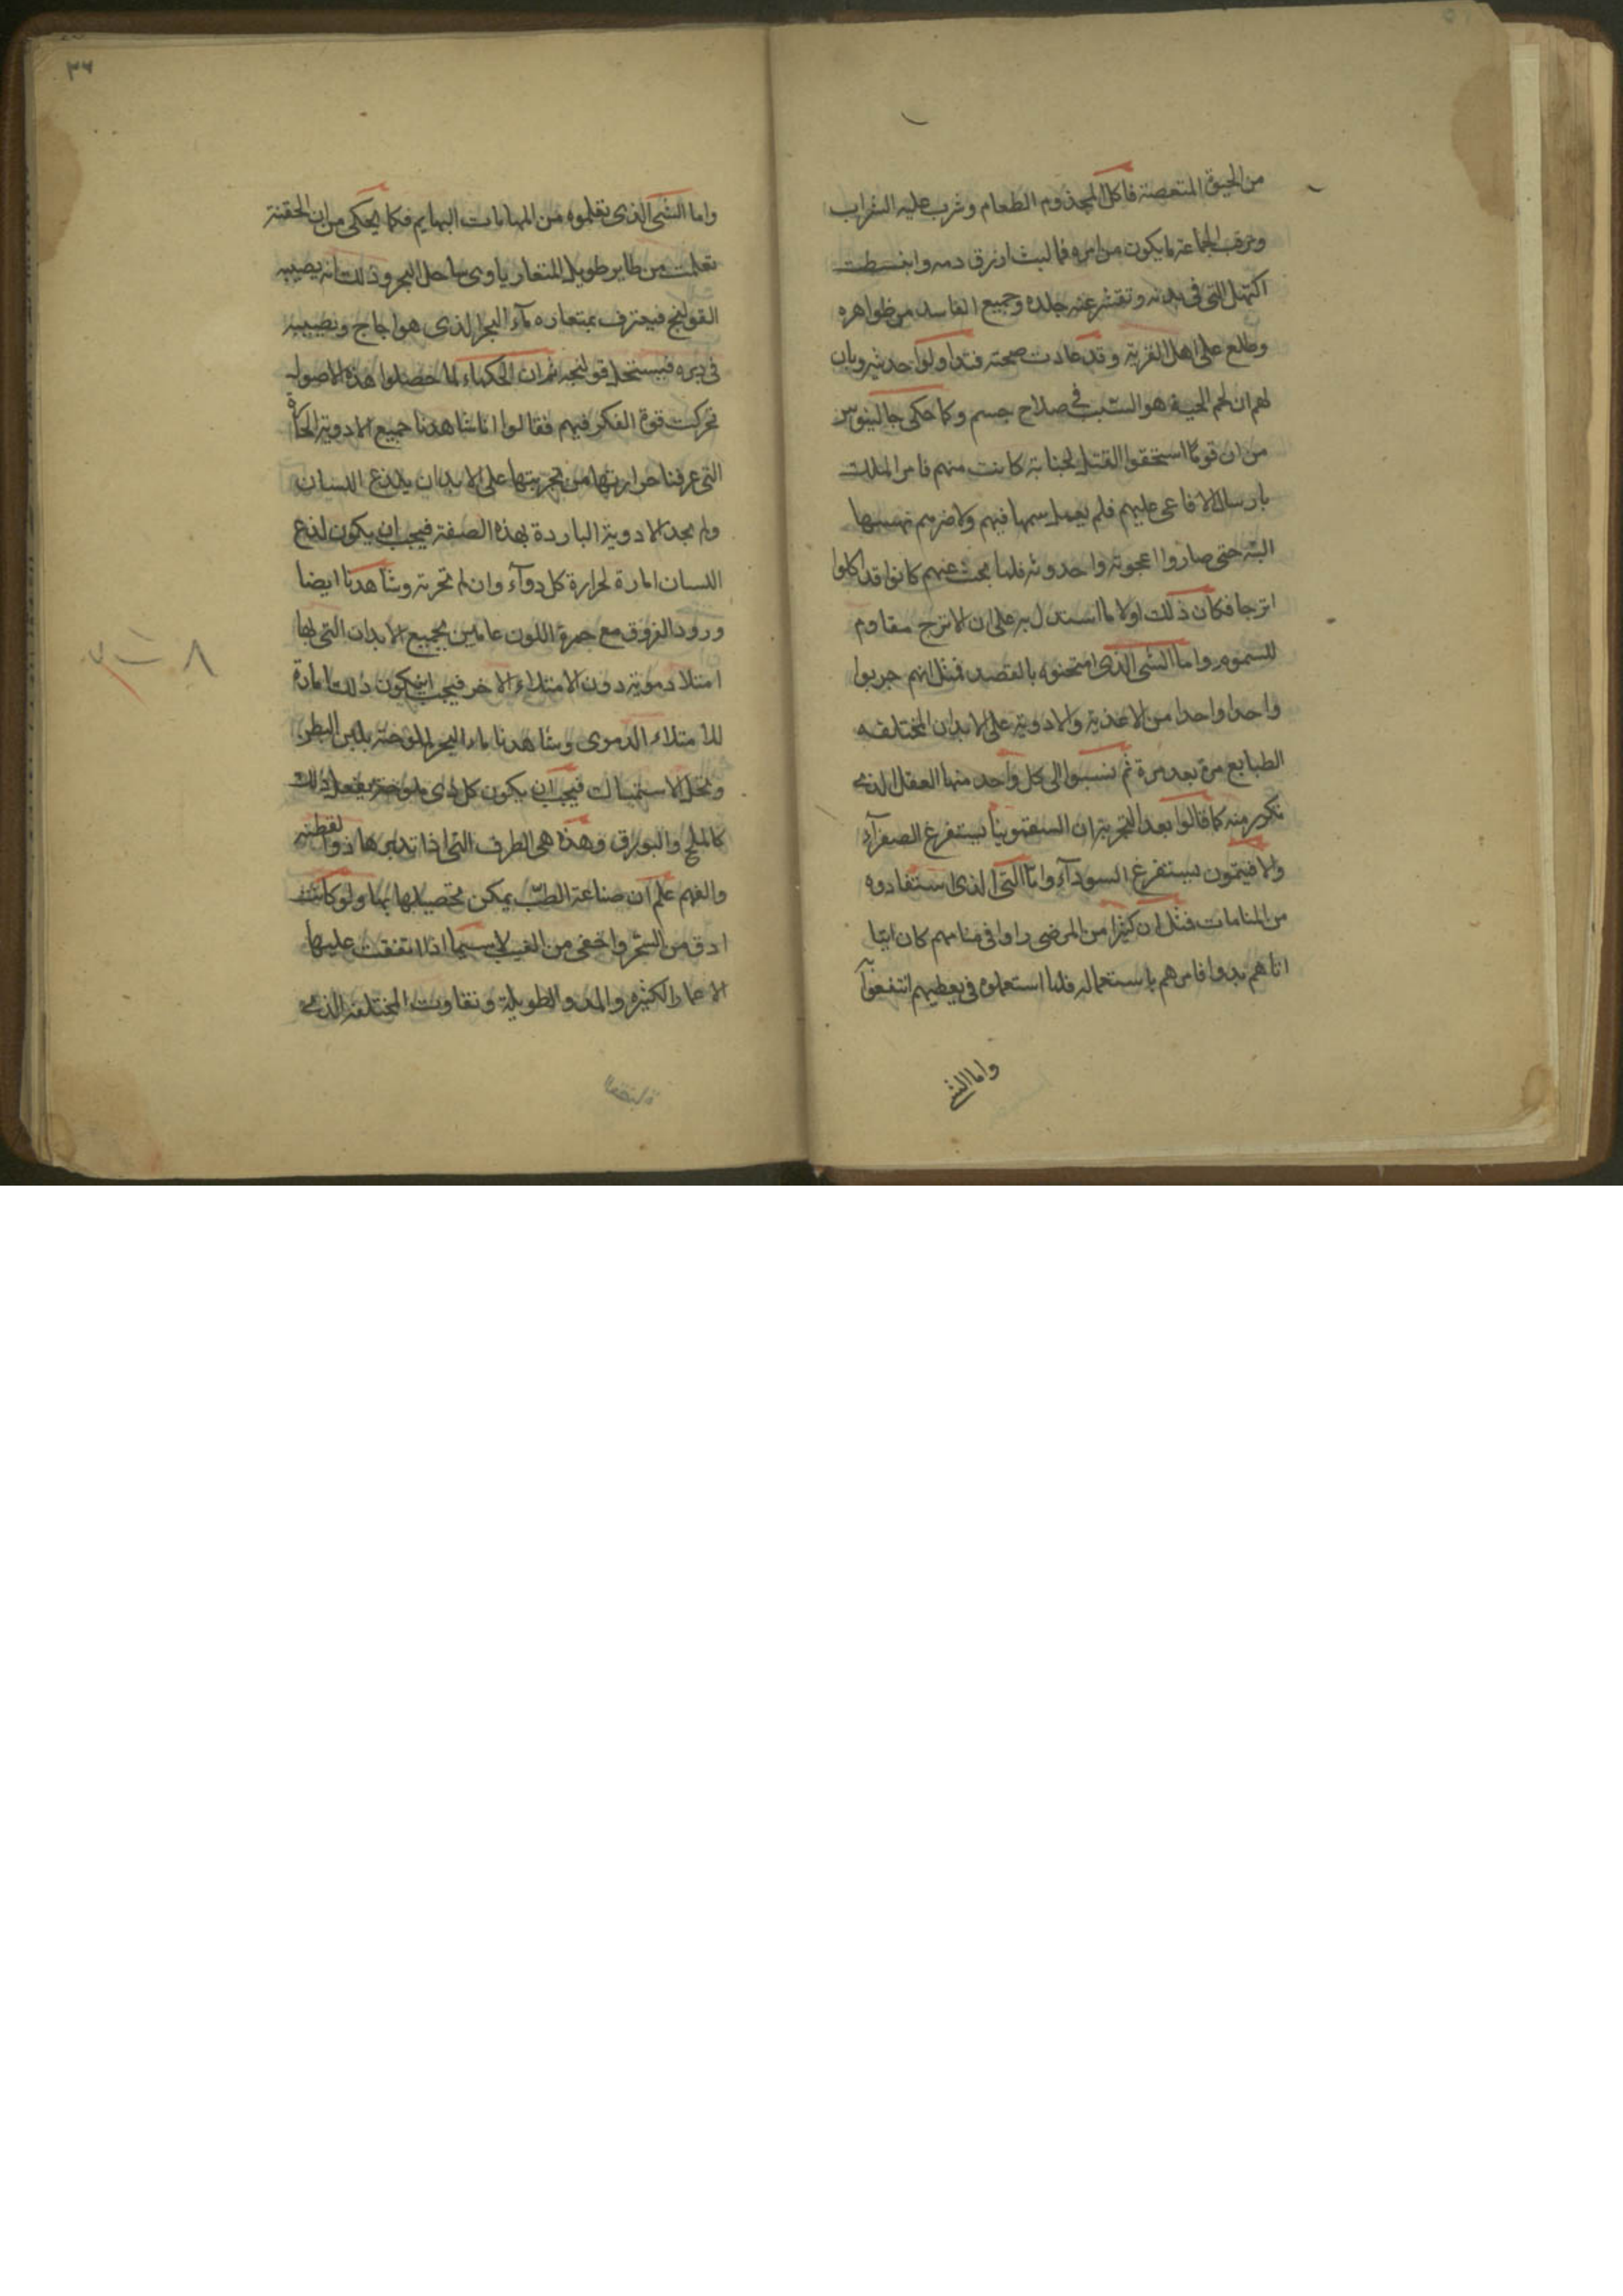 من الحيوة المتعصنة فاكل المجذوم الطعام وشرب عليه الشراب
وترقب الجماعة ما يكون من امره فما لبث ان رق دمه وانبسطت
التي في بدنه وتقشر عنه جلده وجميع الفاسد من ظواهره
وطلع على اهل القرية وقد عادت صحته فتداولوا حديثه وبان
لهم ان لحم الحية هو السبب في صلاح جسم وكما حكى جالينوس
من ان قوما استحقوا القتل لجناية كانت منهم فامر الملك
بارسال الافاعى عليهم فلم يعمل سمها فيهم ولا ضرهم نهسها
البتة حتى صاروا اعجوبة واحدوثة فلما بحث عنهم كانوا قد اكلوا
اترجا فكان ذلك اولا ما استدل به على ان الاترج مقاوم
للسموم واما الشى الذى امتحنوه بالقصد فمثل انهم جربوا
واحدا واحدا من الاغذية والادوية على الابدان المختلفه
الطبايع مرة بعد مرة ثم نسبوا الى كل واحد منها الفعل الذى
تكرر منه كما قالوا بعد التجربة ان السقمونيا يستفرغ الصفرآء
والافيتمون يستفرغ السودآء واما الشى الذى استفادوه
من المنامات فمثل ان كثيرا من المرضى راوا فى منامهم كان اتيا
اتاهم بدوا فامرهم باستعماله فلما استعملوه فى يقظتهم انتفعوا
واما الشى
٣٦
واما الشى الذى تعلموه من الهامات البهايم فكما يحكى من ان الحقنة
تعلمت من طاير طويل المنقار ياوى ساحل البحر وذلك انه يصيبه
القولنج فيغترف بمنقاره مآء البحر الذى هو اجاج ويصيبه
فى دبره فيستحل قولنجه ثم ان الحكماء لما حصلوا هذه الاصول
تحركت قوة الفكر فيهم فقالوا انا شاهدنا جميع الادوية الحارة
التى عرفنا حرارتها من تجربتها على الابدان يلذع اللسان
ولم نجد الادوية الباردة بهذه الصفة فيجب ان يكون لذع
اللسان امارة لحرارة كل دوآء وان لم تجربه وشاهدنا ايضا
ورود العروق مع حمرة اللون عامين بجميع الابدان التى بها
امتلا دموية دون الامتلاء الاخر فيجب ان يكون ذلك امارة
للامتلاء الدموى وشاهدنا ماء البحر للموحته يلين البطن
وتحل الاستمساك فيجب ان يكون كل ذى ملوحة يفعل ذلك
كالملح والبورق وهذه هى الطرق التى اذا تدبرها ذو الفطنه
والفهم علم ان صناعة الطب يمكن تحصيلها بها ولو كانت
ادق من الشعر واخفى من الغيب لا سيما اذا اتفقت عليها
الاعمار الكثيره والمدد الطويلة وتفاوت المختلفة الذى